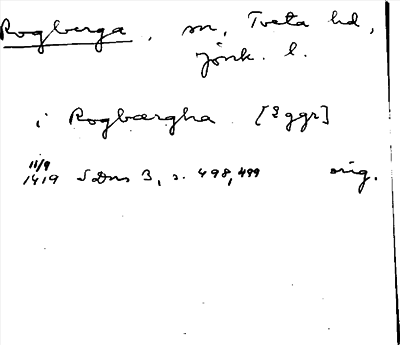 Rogberga, sn, Tveta hd,
Jönk. l.
i Rogbærgha [Eggr]
11/9
1419 SDns 3, s. 498, 499 orig.